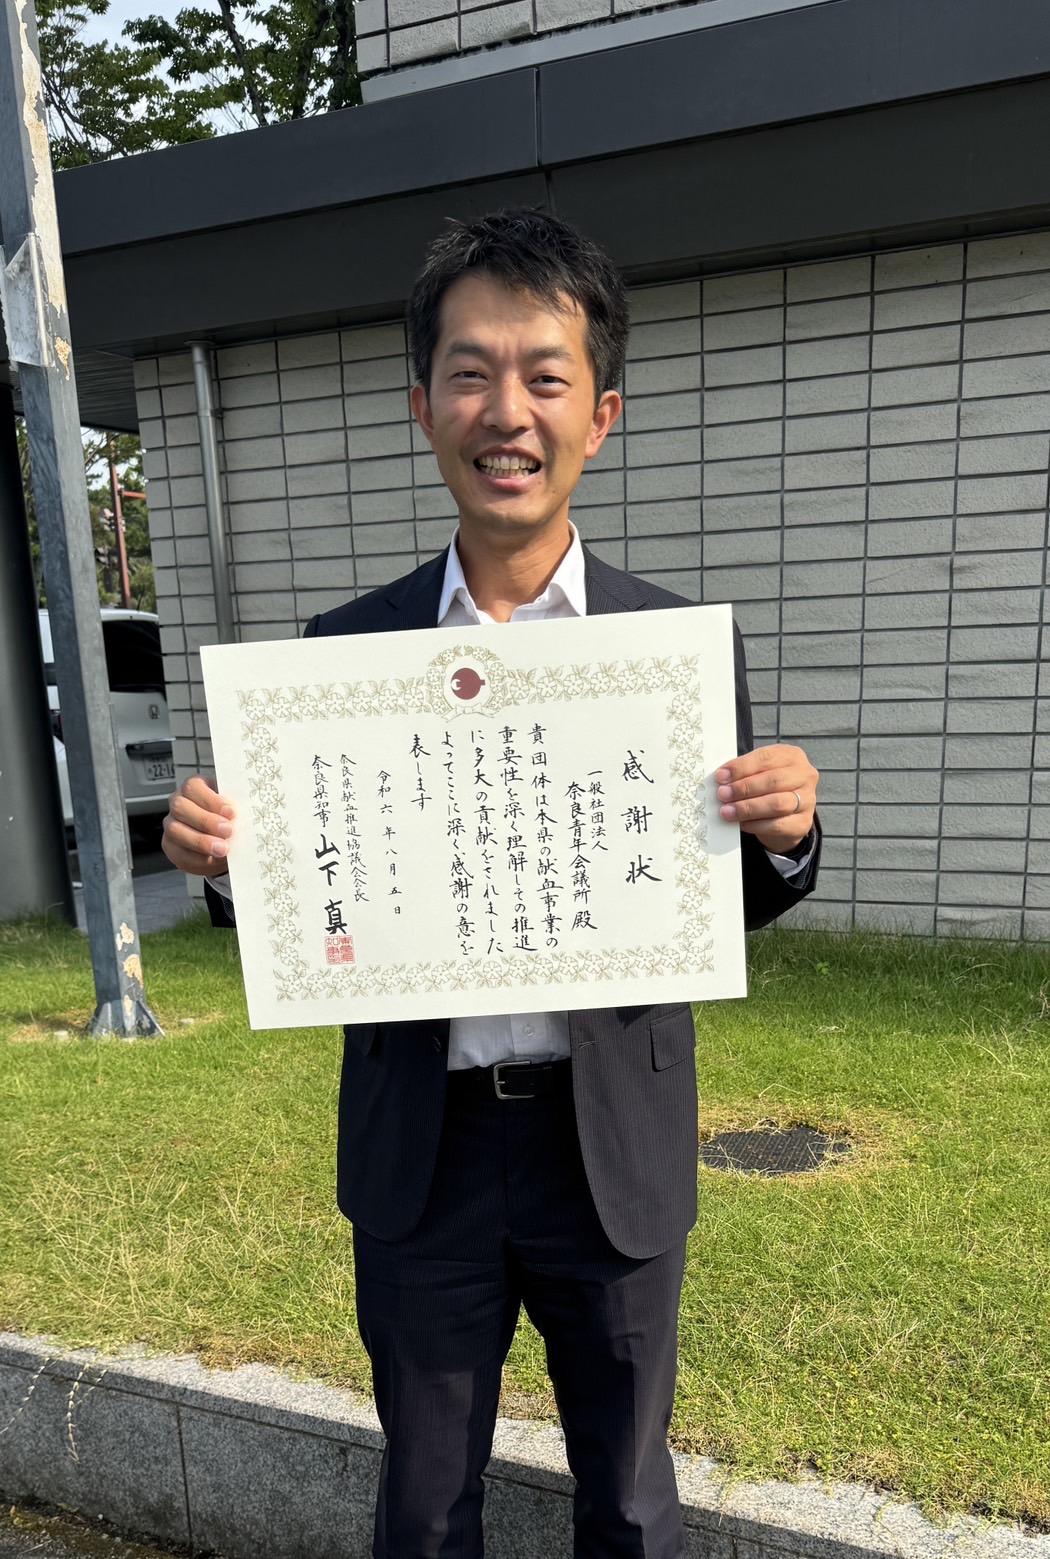 感謝状
一般社団法人
奈良青年会議所 殿
貴団体は本県の献血事業の
重要性を深く理解しその推進
に多大の貢献をされました
よってここに深く感謝の意を
表します
令和六年八月五日
奈良県献血推進協議会会長
奈良県知事 山下真